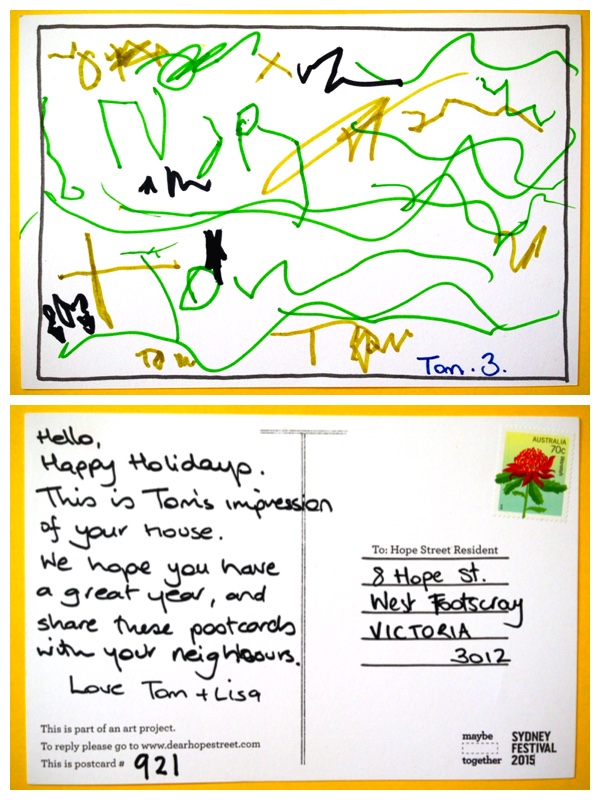 Tom
T Tom
Tom . 3 .
Hello,
Happy Holidays.
This is Tom's impression
of your house.
We hope you have
a great year, and
share these postcards
with your neighbours.
Love Tom + Lisa
This is part of an art project.
To reply please go to www.dearhopestreet.com
This is postcard # 921
AUSTRALIA
70c
Waratah
To: Hope Street Resident
8 Hope St.
West Footscray
VICTORIA
3012
maybe
together
SYDNEY
FESTIVAL
2015